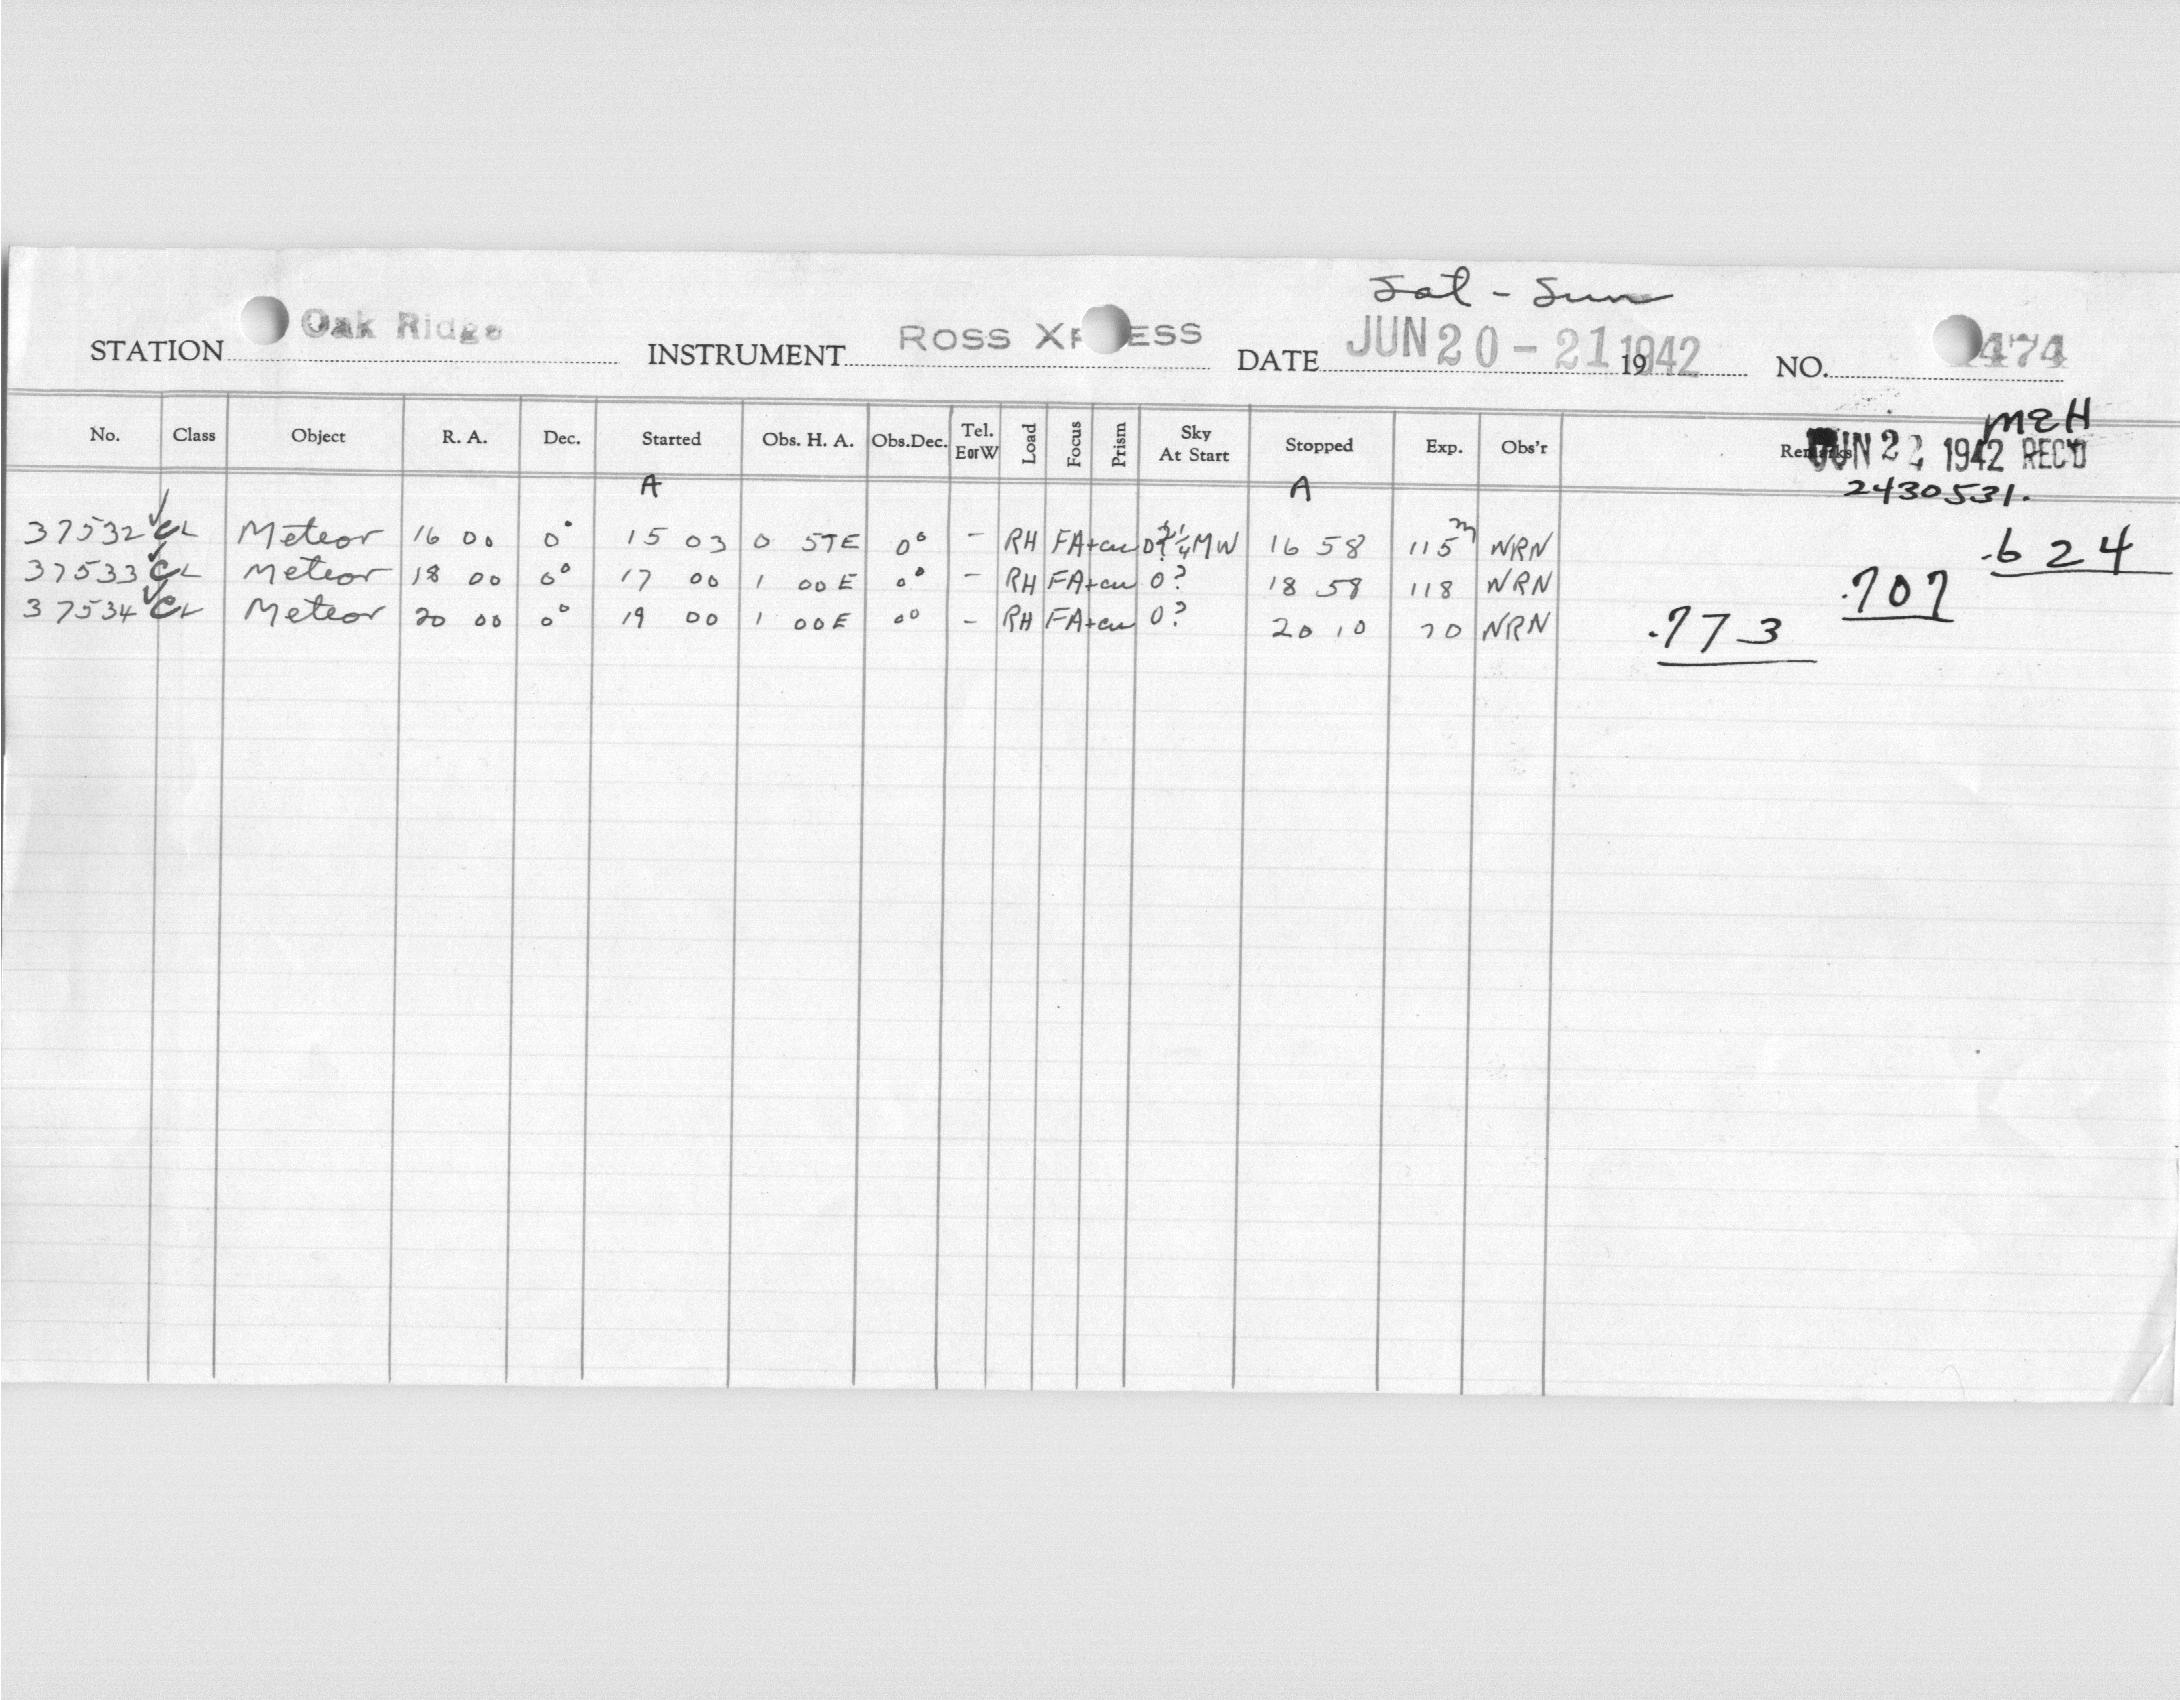 Sat - Sun
STATION Oak Ridge INSTRUMENT ROSS XPRESS DATE JUN 20 - 21 1942 19 NO. 474
MEH
No. Class Object R. A. Dec. Started Obs. H. A. Obs.Dec. Tel. E or W Load Focus Prism Sky At Start Stopped Exp. Obs'r Remarks JUN 22 1942 REC'D
A A 2430531.
37532 ✓ CL Meteor 16 00 0° 15 03 0 57E 0° - RH FA+cw MW 16 58 115m NRN .624
37533 ✓ CL Meteor 18 00 0° 17 00 1 00E 0° - RH FA+cw 0? 18 58 118 NRN .707
37534 ✓ CL Meteor 20 00 0° 19 00 1 00E 0° - RH FA+cw 0? 20 10 70 NRN .773